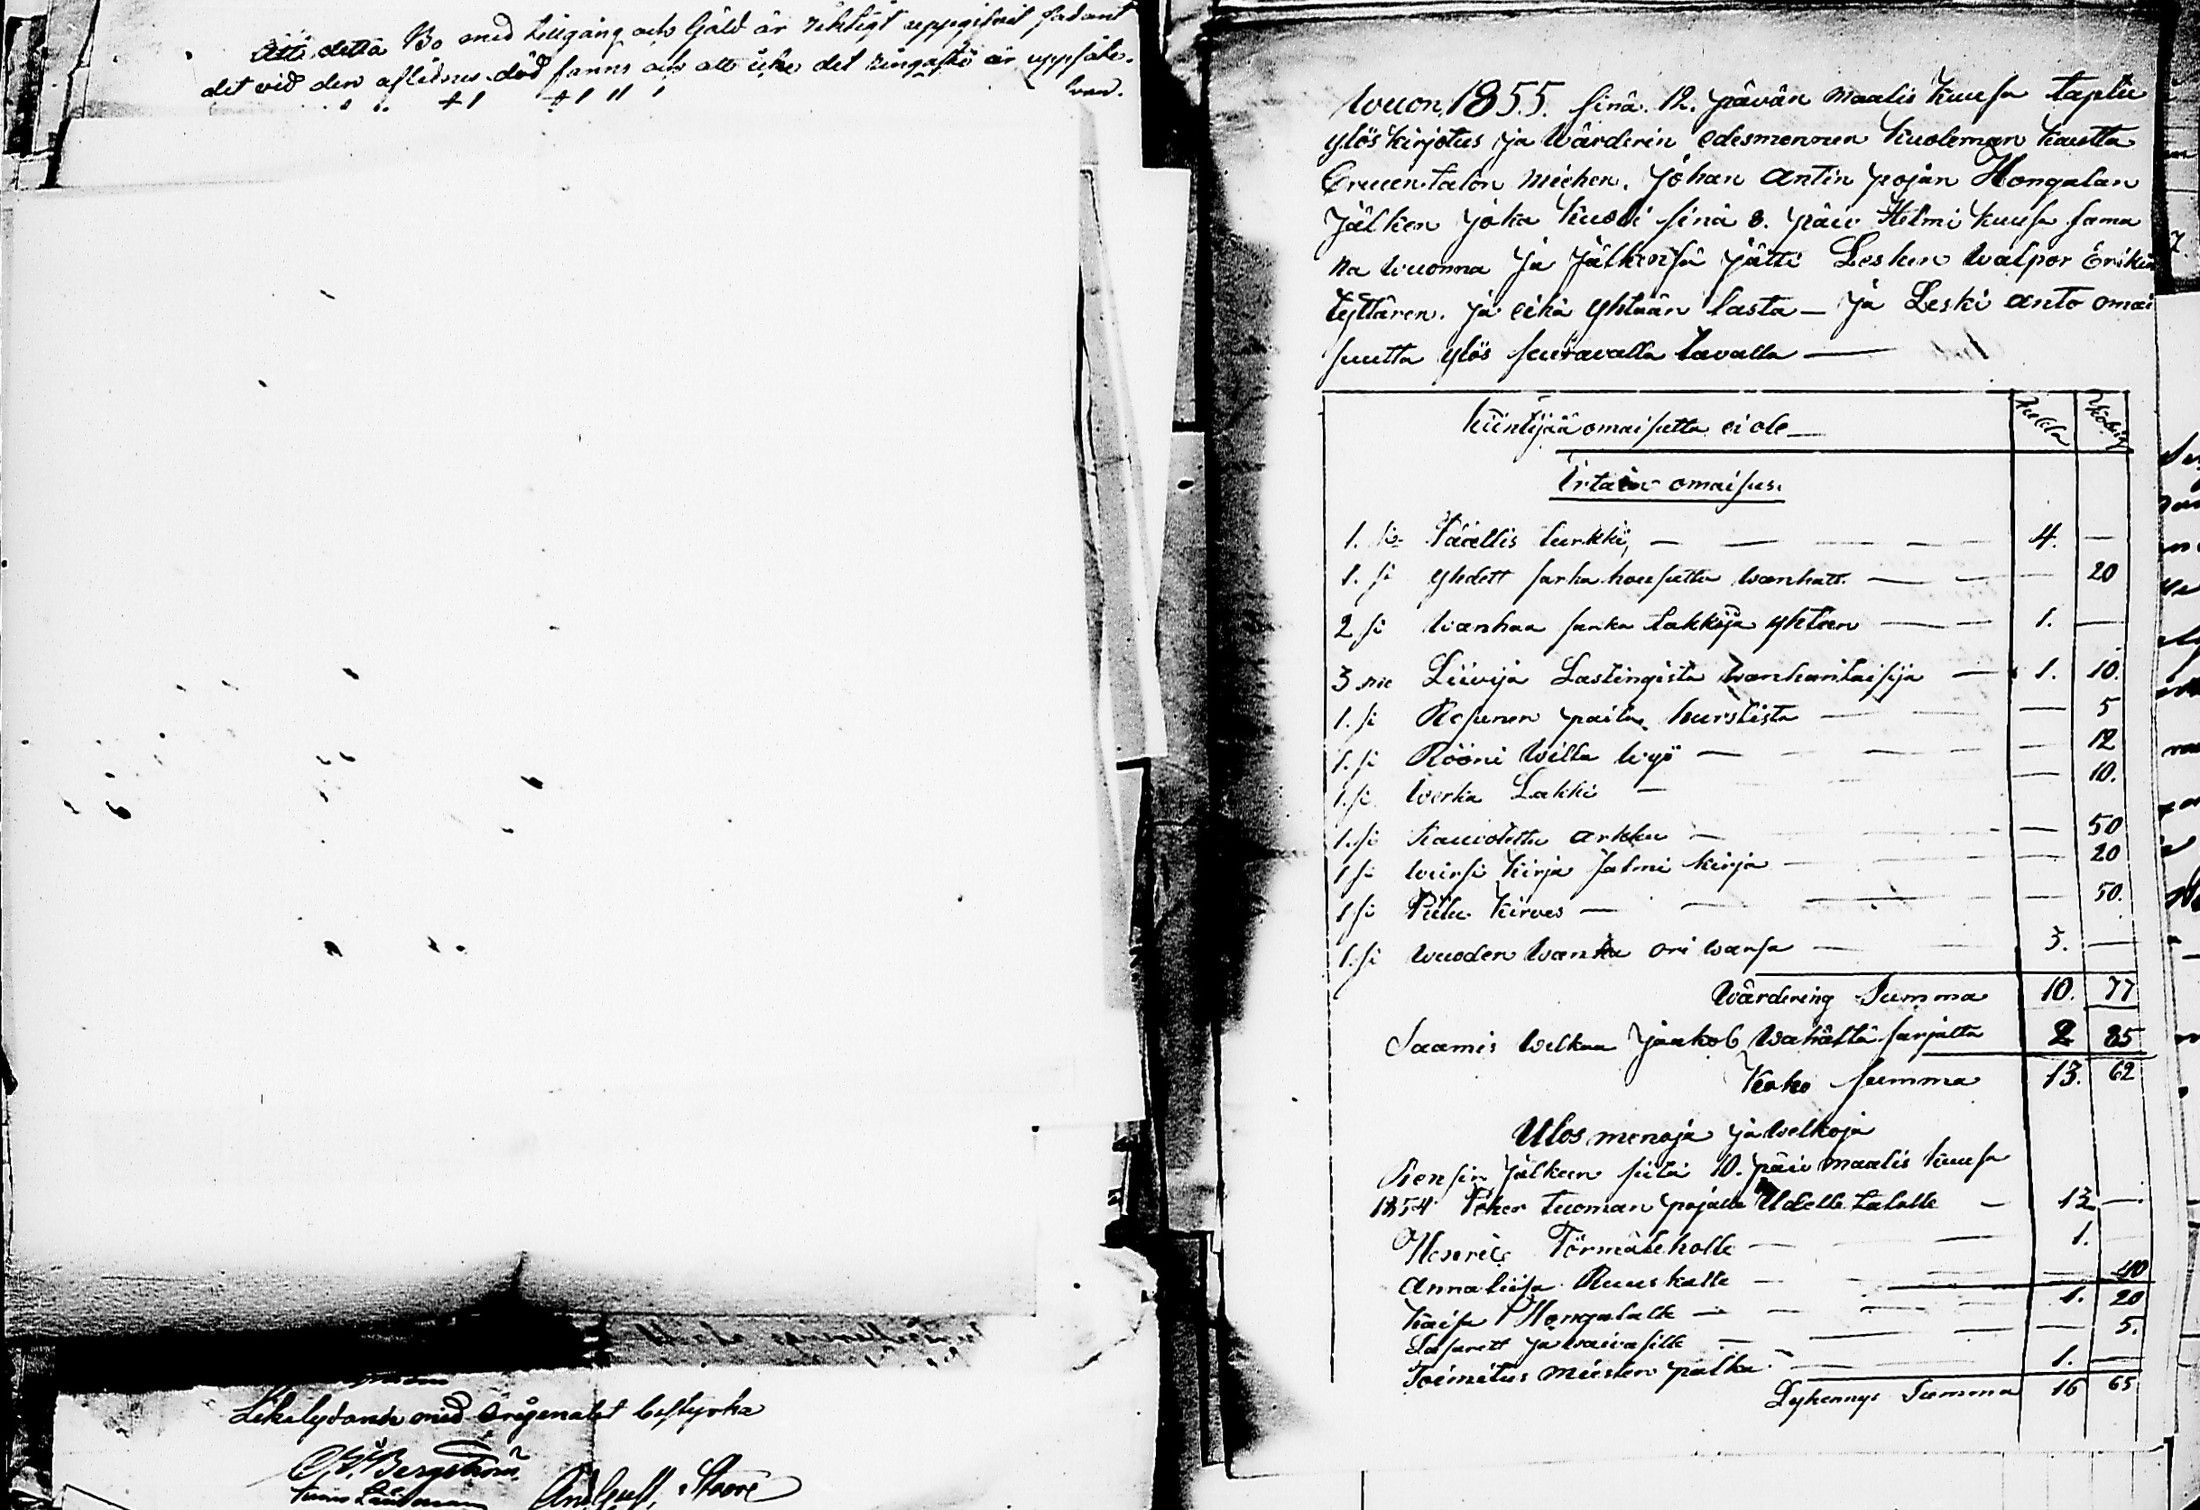 Att detta Bo med tillgång och Gäld är riktigt uppgifvit sådant
det vid den aflidnes död fanns och att icke det ringaste är uppsåte-
Likalydande med Originalet bestyrka
Bergström
Wuon 1855. sinä. 12. päivän Maalis Kuusa taptu
ylös kirjotus ja Wärderin edesmennen Kuoleman Kautta
talon Miehen. Johan Antin pojan Hongalan
Jälken joka Kuoli sinä 8. päiv Helmi Kuusa sama
na Wuonna ja jälkensä jätti Lesken Walpor Erikin
tyttären. ja eikä yhtään lasta — ja Leski anto omai
suutta ylös seuravalla tavalla —
Kiintijää omaisutta ei ole —
Rupla Kopeik
Irtain omaisus.
1. si Päällis turkki, — 4. —
1. si yhdett sarka housutta wanhatt. — 20
2 si Wanhaa sarka takkija yhten — 1. —
3 me Liivija Lastingista wanhantaisija — 1. 10.
1. si Resunen paita hurstista — 5
1. si Rööni Willa Wyö — 12
1. si Werka Lakki — 10.
1. si Rauvotettu arkku — 50
1 si Wirsi Kirja salmi Kirja — 20
1 si Piilu Kirves — 50.
1. si Wuoden Wanha ori warsa — 3. —
Wärdering Summa 10. 77
Saamis Welkaa Jaakob Wahältä sarjalta 2 85
Koko summa 13. 62
Ulos menoja ja Welkoja
Rensin jälkeen siitä 10. päiv Maalis Kuusa
1854 Peker Tuoman pojalle Udelle talolle — 13 —
Henric Törmäleholle — 1.
Annaliisa Ruuskalle — 40
Kaisa Hongalalle — 1. 20
Lasarett ja waivasille — 5.
Toimitus miesten palka — 1. —
Lyhennys Summa 16 65